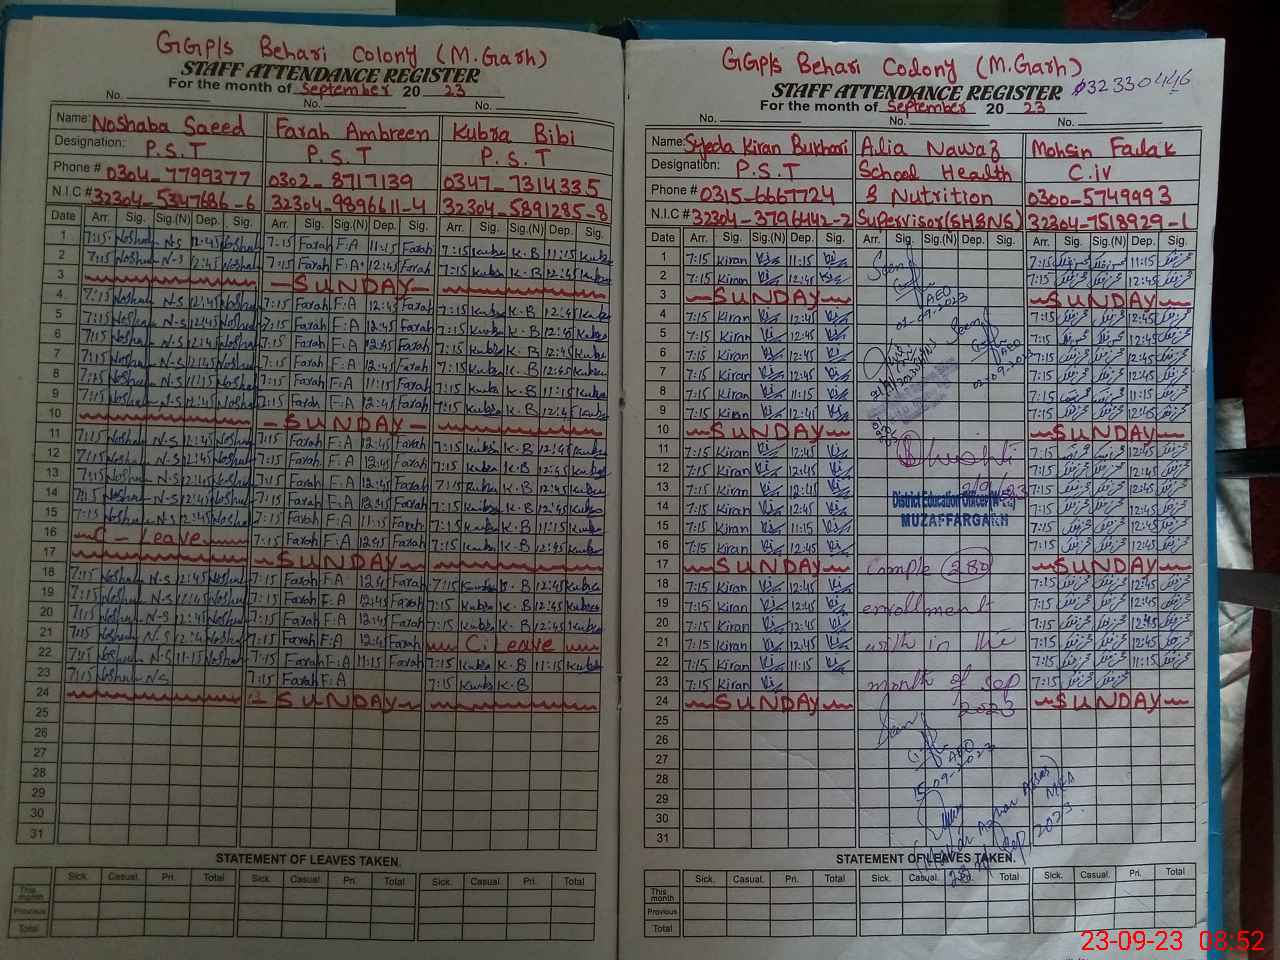 GGP/s Behari Colony (M.Garh)
STAFF ATTENDANCE REGISTER
For the month of September 20 23
No. No. No.
Name: Noshaba Saeed Farah Ambreen Kubra Bibi
Designation: P.S.T P.S.T P.S.T
Phone # 0304-7799377 0302-8717139 0347-7314335
N.I.C # 32304-5347686-6 32304-9896611-4 32304-5891285-8
Date Arr. Sig. Sig.(N) Dep. Sig. Arr. Sig. Sig.(N) Dep. Sig. Arr. Sig. Sig.(N) Dep. Sig.
1 7:15 Noshab N.S 12:45 Noshab 7:15 Farah F.A 11:15 Farah 7:15 Kubra K.B 11:15 Kubra
2 7:15 Noshab N-S 12:45 Noshab 7:15 Farah F.A 12:45 Farah 7:15 Kubra K.B 12:45 Kubra
3 SUNDAY
4 7:15 Noshab N-S 12:45 Noshab 7:15 Farah F.A 12:45 Farah 7:15 Kubra K.B 12:45 Kubra
5 7:15 Noshab N-S 12:45 Noshab 7:15 Farah F.A 12:45 Farah 7:15 Kubra K.B 12:45 Kubra
6 7:15 Noshab N.S 12:45 Noshab 7:15 Farah F.A 12:45 Farah 7:15 Kubra K-B 12:45 Kubra
7 7:15 Noshab N.S 12:45 Noshab 7:15 Farah F.A 12:45 Farah 7:15 Kubra K.B 12:45 Kubra
8 7:15 Noshab N.S 11:15 Noshab 7:15 Farah F.A 11:15 Farah 7:15 Kubra K.B 11:15 Kubra
9 7:15 Noshab N.S 12:45 Noshab 7:15 Farah F.A 12:45 Farah 7:15 Kubra K.B 12:45 Kubra
10 SUNDAY
11 7:15 Noshab N-S 12:45 Noshab 7:15 Farah F.A 12:45 Farah 7:15 Kubra K-B 12:45 Kubra
12 7:15 Noshab N.S 12:45 Noshab 7:15 Farah F.A 12:45 Farah 7:15 Kubra K.B 12:45 Kubra
13 7:15 Noshab N.S 12:45 Noshab 7:15 Farah F.A 12:45 Farah 7:15 Kubra K.B 12:45 Kubra
14 7:15 Noshab N-S 12:45 Noshab 7:15 Farah F.A 12:45 Farah 7:15 Kubra K.B 12:45 Kubra
15 7:15 Noshab N.S 12:45 Noshab 7:15 Farah F.A 11:15 Farah 7:15 Kubra K.B 11:15 Kubra
16 C-Leave 7:15 Farah F.A 12:45 Farah 7:15 Kubra K.B 12:45 Kubra
17 SUNDAY
18 7:15 Noshab N.S 12:45 Noshab 7:15 Farah F.A 12:45 Farah 7:15 Kubra K.B 12:45 Kubra
19 7:15 Noshab N.S 12:45 Noshab 7:15 Farah F.A 12:45 Farah 7:15 Kubra K.B 12:45 Kubra
20 7:15 Noshab N-S 12:45 Noshab 7:15 Farah F.A 12:45 Farah 7:15 Kubra K.B 12:45 Kubra
21 7:15 Noshab N.S 12:45 Noshab 7:15 Farah F.A 12:45 Farah C.Leave
22 7:15 Noshab N.S 11:15 Noshab 7:15 Farah F.A 11:15 Farah 7:15 Kubra K.B 11:15 Kubra
23 7:15 Noshab N.S 7:15 Farah F.A 7:15 Kubra K-B
24 SUNDAY
25
26
27
28
29
30
31
STATEMENT OF LEAVES TAKEN.
Sick. Casual. Pri. Total Sick. Casual. Pri. Total Sick. Casual. Pri. Total
This month
Previous
Total
GGP/s Behari Colony (M.Garh)
STAFF ATTENDANCE REGISTER 32330446
For the month of September 20 23
No. No. No.
Name: Syeda Kiran Bukhari Alia Nawaz Mohsin Falak
Designation: P.S.T School Health C.iv
Phone # 0315-6667724 & Nutrition 0300-5749993
N.I.C # 32304-3796442-2 Supervisor(SH&NS) 32304-7518929-1
Date Arr. Sig. Sig.(N) Dep. Sig. Arr. Sig. Sig.(N) Dep. Sig. Arr. Sig. Sig.(N) Dep. Sig.
1 7:15 Kiran 11:15 7:15 11:15
2 7:15 Kiran 12:45 Seen 7:15 12:45
3 SUNDAY AEO SUNDAY
4 7:15 Kiran 12:45 02-09-2023 7:15 12:45
5 7:15 Kiran 12:45 Seen 7:15 12:45
6 7:15 Kiran 12:45 AEO 7:15 12:45
7 7:15 Kiran 12:45 02-09-2023 7:15 12:45
8 7:15 Kiran 11:15 7:15 11:15
9 7:15 Kiran 12:45 7:15 12:45
10 SUNDAY SUNDAY
11 7:15 Kiran 12:45 7:15 12:45
12 7:15 Kiran 12:45 7:15 12:45
13 7:15 Kiran 12:45 7:15 12:45
14 7:15 Kiran 12:45 District Education Officer 7:15 12:45
15 7:15 Kiran 11:15 MUZAFFARGARH 7:15 11:15
16 7:15 Kiran 12:45 7:15 12:45
17 SUNDAY Comple 280 SUNDAY
18 7:15 Kiran 12:45 7:15 12:45
19 7:15 Kiran 12:45 enrollment 7:15 12:45
20 7:15 Kiran 12:45 7:15 12:45
21 7:15 Kiran 12:45 with in the 7:15 12:45
22 7:15 Kiran 11:15 7:15 11:15
23 7:15 Kiran month of Sep 7:15
24 SUNDAY 2023 SUNDAY
25 Seen
26
27 AEO
28 15-09-2023
29 MEA
30
31 Sep, 2023
STATEMENT OF LEAVES TAKEN.
Sick. Casual. Pri. Total Sick. Casual. Pri. Total Sick. Casual. Pri. Total
This month
Previous
Total
23-09-23 08:52